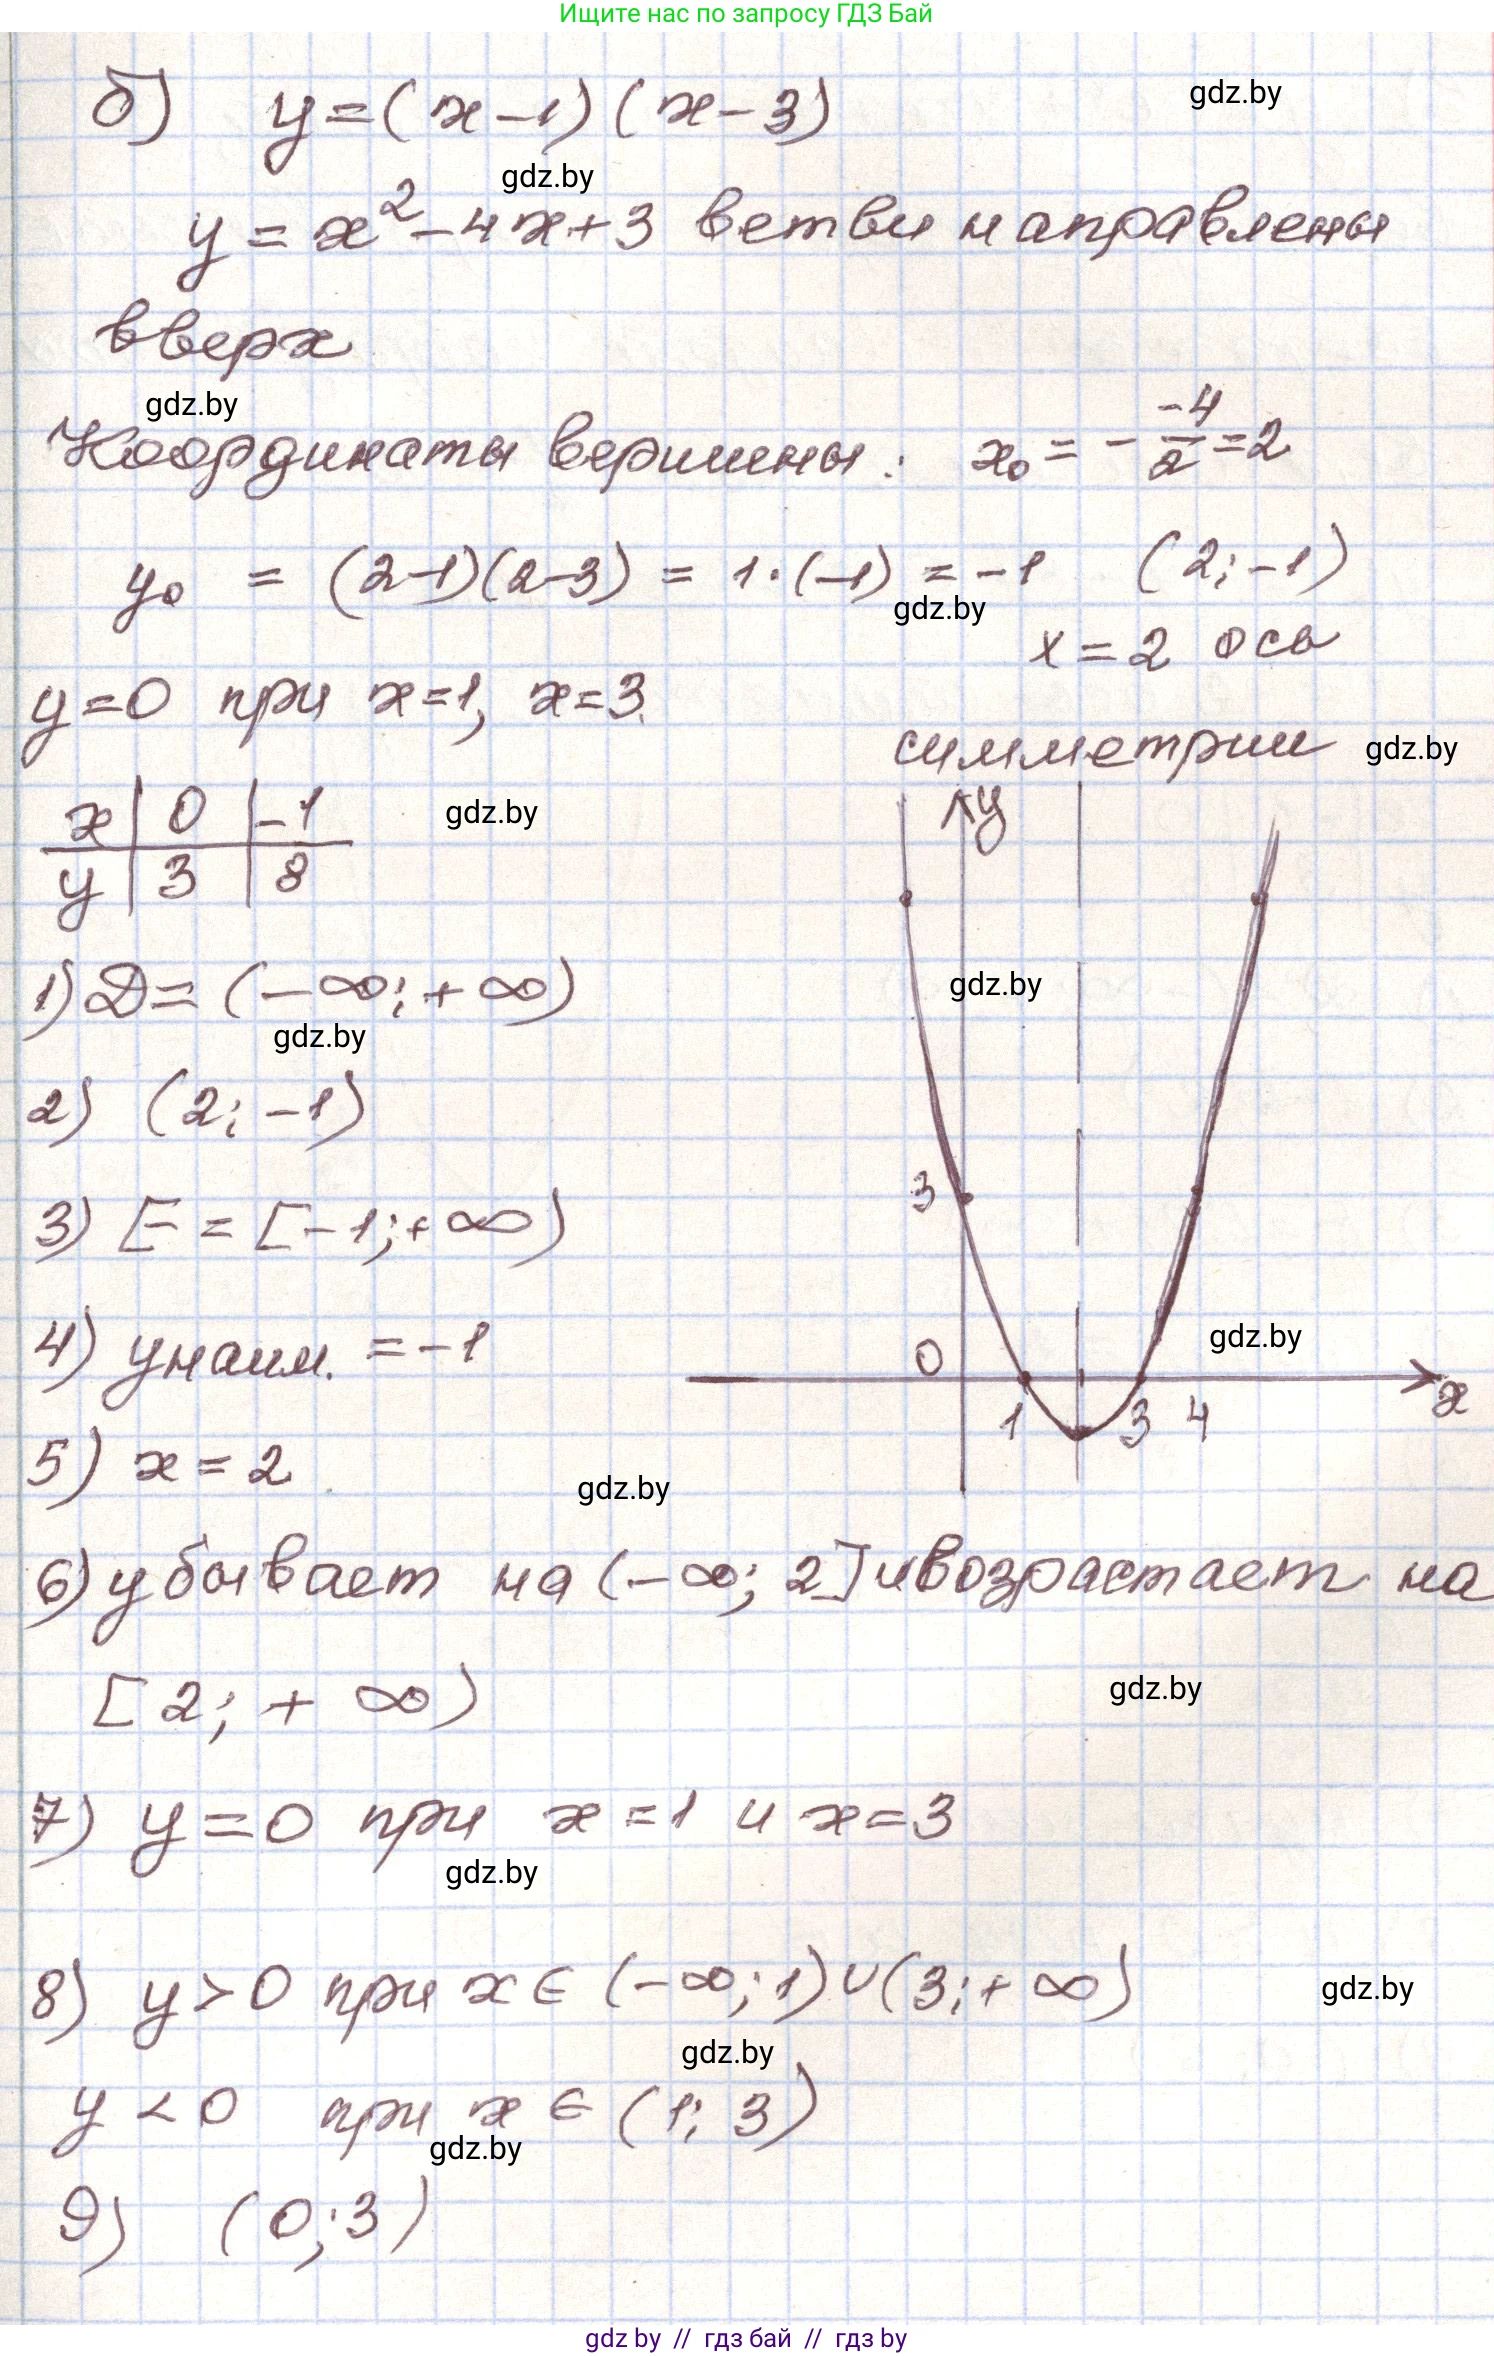 Ищите нас по запросу ГДЗ Бай
б) y=(x-1)(x-3)
gdz.by
gdz.by
y=x²-4x+3 ветви направлены
вверх
gdz.by
Координаты вершины: x₀=-\frac{-4}{2}=2
y₀ = (2-1)(2-3) = 1·(-1) = -1 (2;-1)
gdz.by
x=2 ось
y=0 при x=1, x=3.
симметрии gdz.by
x | 0 | -1
gdz.by
y | 3 | 8
y
gdz.by
1) D=(-∞;+∞)
gdz.by
2) (2;-1)
3) E=[-1;+∞)
3
4) yнаим. =-1
gdz.by
0
x
1 3 4
5) x=2
gdz.by
6) убывает на (-∞; 2] и возрастает на
[2; + ∞)
gdz.by
7) y=0 при x=1 и x=3
gdz.by
8) y>0 при x∈(-∞;1)∪(3;+∞)
gdz.by
gdz.by
y<0 при x∈(1; 3)
gdz.by
9) (0;3)
gdz by // гдз бай // гдз by